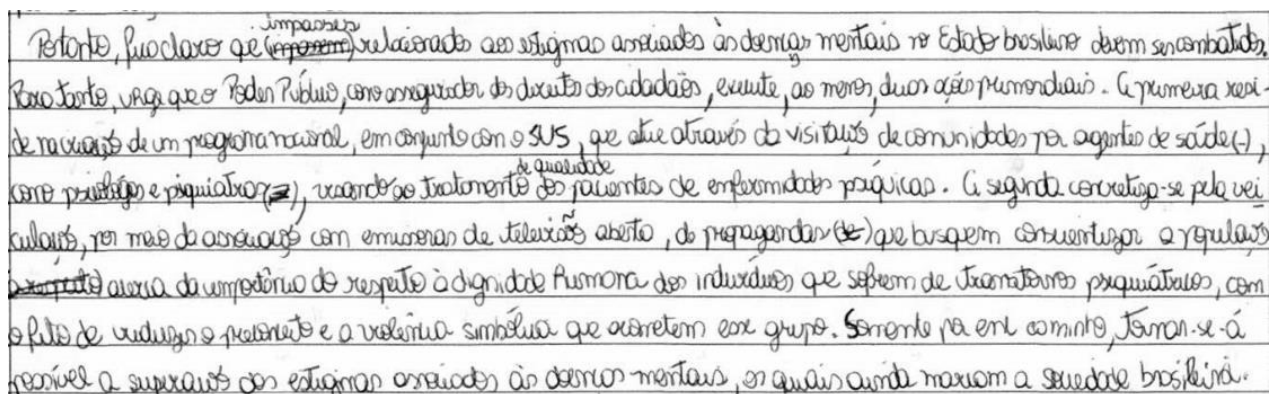 Portanto, fica claro que (imposem) impasses relacionados aos estigmas associados às doenças mentais no Estado brasileiro devem ser combatidos.
Para tanto, urge que o Poder Público, como assegurador dos direitos dos cidadãos, execute, ao menos, duas ações primordiais. A primeira resi-
de na criação de um programa nacional, em conjunto com o SUS, que atue através da visitação de comunidades por agentes de saúde (-),
como psicólogos e psiquiatras, visando ao tratamento de qualidade dos pacientes de enfermidades psíquicas. A segunda concretiza-se pela vei
culação, por meio da associação com emissoras de televisão aberta, de propagandas (de) que busquem conscientizar a população
a respeito) acerca da importância do respeito à dignidade humana dos indivíduos que sofrem de transtornos psiquiátricos, com
o fito de reduzir o preconceito e a violência simbólica que acometem esse grupo. Somente por esse caminho, tornar-se-á
possível a superação dos estigmas associados às doenças mentais, os quais ainda marcam a sociedade brasileira.